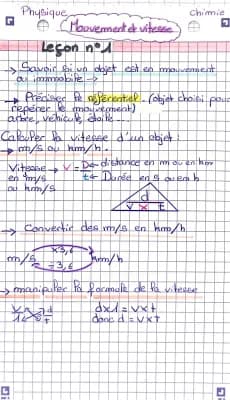 Physique Chimie
Mouvement et vitesse
Leçon n°1
→ Savoir si un objet est en mouvement
ou immobile →
→ Préciser le référentiel (objet choisi pour
repérer le mouvement)
arbre, véhicule, étoile...
Calculer la vitesse d'un objet:
→ m/s ou km/h.
Vitesse → v = D ← distance en m ou en km
en m/s t ← Durée en s ou en h
ou km/h
d
v x t
→ Convertir des m/s en km/h
x3,6
m/s km/h
÷3,6
→ manipuler la formule de la vitesse
v d
1 t
dx1 = vxt
donc d = vxt